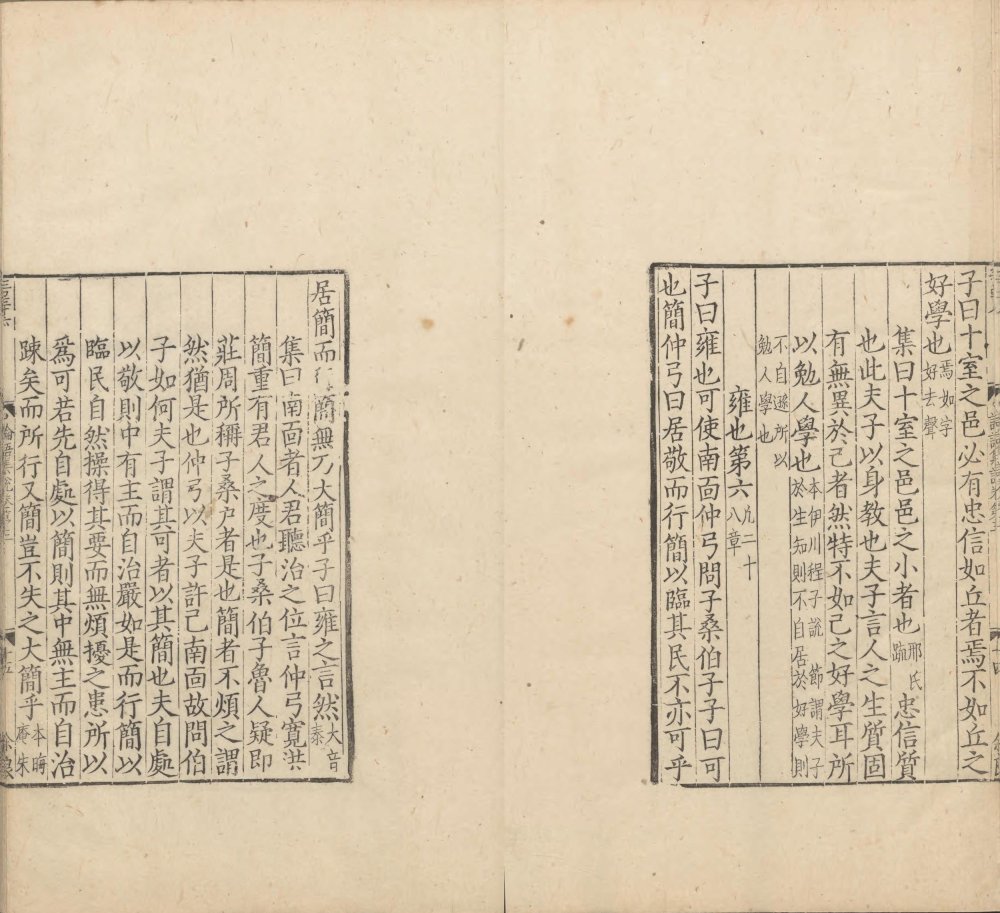 子曰十室之邑必有忠信如丘者焉不如丘之
好學也焉如字好去聲
集曰十室之邑邑之小者也邢氏疏忠信質
也此夫子以身教也夫子言人之生質固
有無異於己者然特不如己之好學耳所
以勉人學也本伊川程子說節謂夫子於生知則不自居於好學則
不自遜所以勉人學也
雍也第六凡二十八章
子曰雍也可使南面仲弓問子桑伯子子曰可
也簡仲弓曰居敬而行簡以臨其民不亦可乎
居簡而行簡無乃大簡乎子曰雍之言然大音泰
集曰南面者人君聽治之位言仲弓寬洪
簡重有君人之度也子桑伯子魯人疑即
莊周所稱子桑户者是也簡者不煩之謂
然猶是也仲弓以夫子許己南面故問伯
子如何夫子謂其可者以其簡也夫自處
以敬則中有主而自治嚴如是而行簡以
臨民自然操得其要而無煩擾之患所以
爲可若先自處以簡則其中無主而自治
踈矣而所行又簡豈不失之大簡乎本晦庵朱